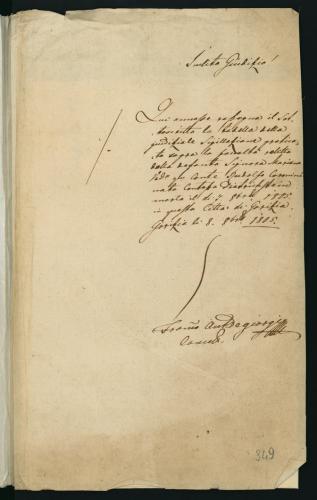 Inclito Giudizio!
Qui annesso rassegna il Sot
toscritto la Tabella della
giudiziale Sigillazione pratica
ta sopra la facoltà relitta
dalla defonta Signora Mariana
Conte Rodolfo Coronini
nata Contessa Dietrichstein
morta il dì 7. 8bre 1805
in questa Città di Gorizia.
Gorizia li 8. 8bre 1805.
Degiorgio
349